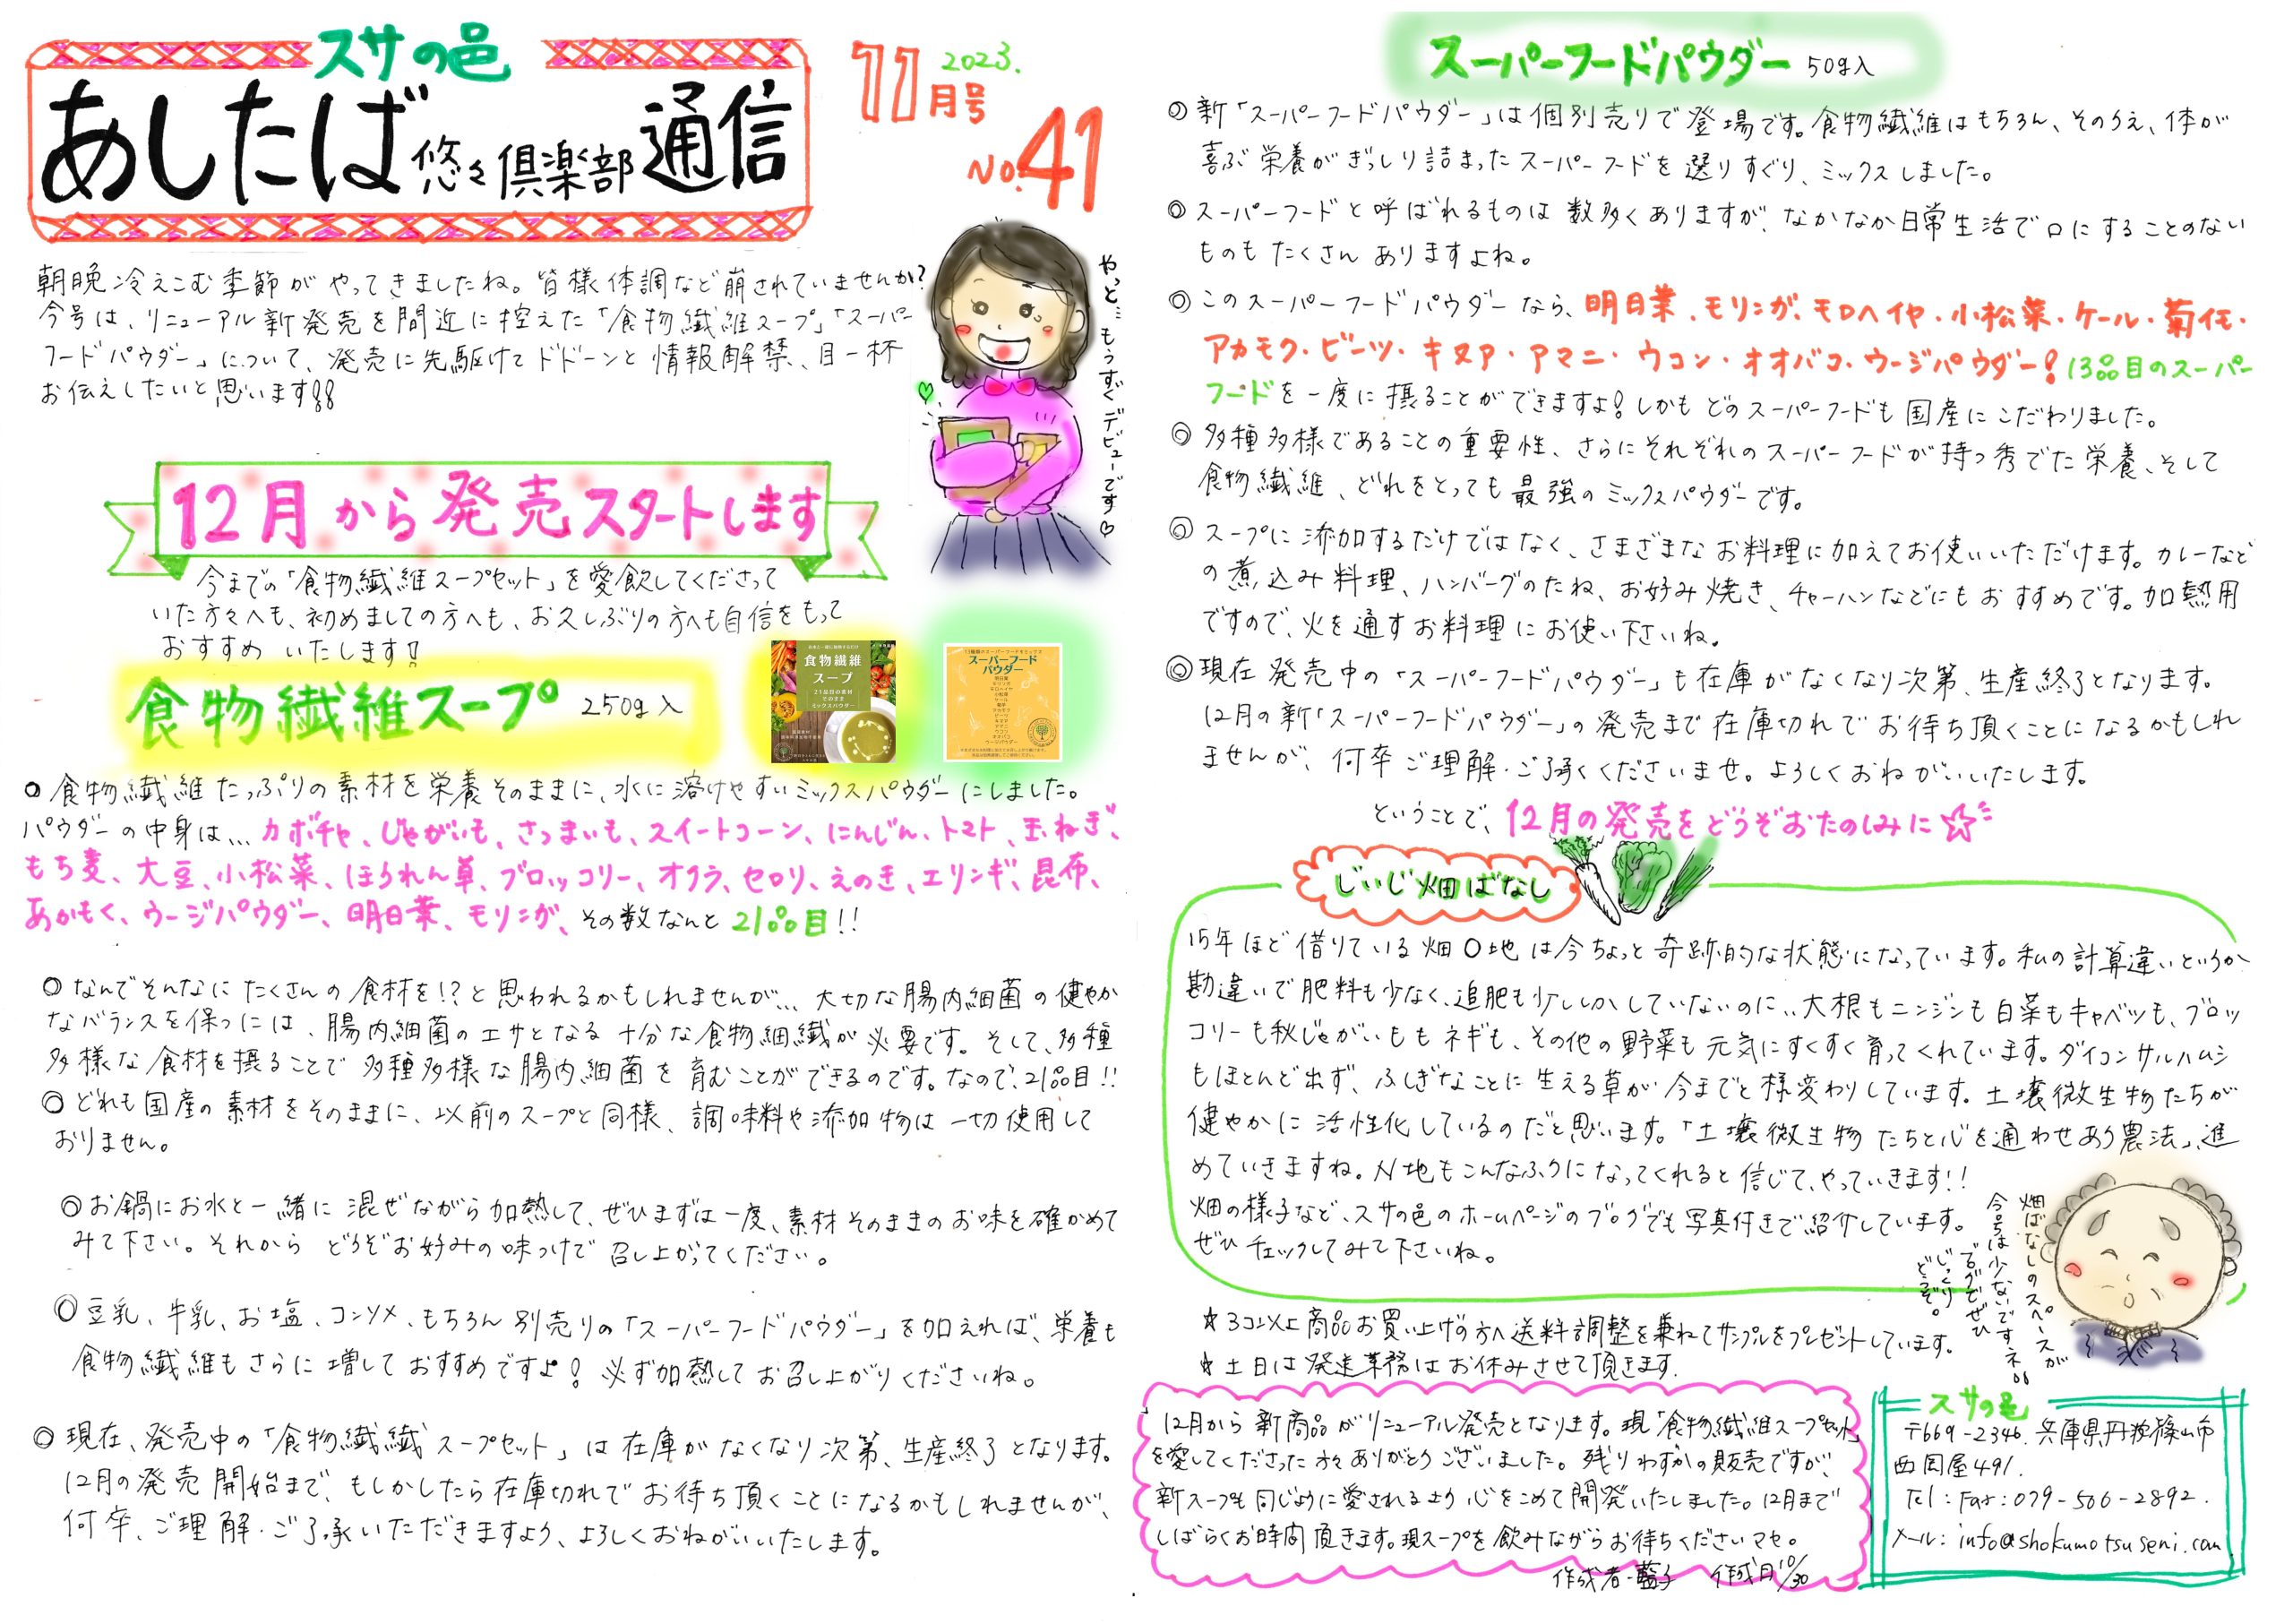 スサの邑
あしたば悠々倶楽部通信
2023.
11月号
No.41
朝晩冷えこむ季節がやってきましたね。皆様体調など崩されていませんか?
今号は、リニューアル新発売を間近に控えた「食物繊維スープ」「スーパー
フードパウダー」について、発売に先駆けてドドーンと情報解禁、目一杯
お伝えしたいと思います!!
やっと…もうすぐデビューです♡
12月から発売スタートします
今までの「食物繊維スープセット」を愛飲してくださって
いた方々へも、初めましての方へも、お久しぶりの方へも自信をもって
おすすめいたします!
食物繊維スープ 250g入
食物繊維
スープ
21品目の素材
そのまま
ミックスパウダー
スーパーフード
パウダー
◎食物繊維たっぷりの素材を栄養そのままに、水に溶けやすいミックスパウダーにしました。
パウダーの中身は… カボチャ、じゃがいも、さつまいも、スイートコーン、にんじん、トマト、玉ねぎ、
もち麦、大豆、小松菜、ほうれん草、ブロッコリー、オクラ、セロリ、えのき、エリンギ、昆布、
あかもく、ウージパウダー、明日葉、モリンガ、その数なんと21品目!!
◎なんでそんなにたくさんの食材を!?と思われるかもしれませんが… 大切な腸内細菌の健やか
なバランスを保つには、腸内細菌のエサとなる十分な食物細繊が必要です。そして、多種
多様な食材を摂ることで多種多様な腸内細菌を育むことができるのです。なので、21品目!!
◎どれも国産の素材をそのままに、以前のスープと同様、調味料や添加物は一切使用して
おりません。
◎お鍋にお水と一緒に混ぜながら加熱して、ぜひまずは一度、素材そのままのお味を確かめて
みて下さい。それからどうぞお好みの味つけで召し上がってください。
◎豆乳、牛乳、お塩、コンソメ、もちろん別売りの「スーパーフードパウダー」を加えれば、栄養も
食物繊維もさらに増しておすすめですよ! 必ず加熱してお召し上がりくださいね。
◎現在、発売中の「食物繊繊スープセット」は在庫がなくなり次第、生産終了となります。
12月の発売開始まで、もしかしたら在庫切れでお待ち頂くことになるかもしれませんが、
何卒、ご理解・ご了承いただきますよう、よろしくおねがいいたします。
スーパーフードパウダー 50g入
◎新「スーパーフードパウダー」は個別売りで登場です。食物繊維はもちろん、そのうえ、体が
喜ぶ栄養がぎっしり詰まったスーパーフードを選りすぐり、ミックスしました。
◎スーパーフードと呼ばれるものは数多くありますが、なかなか日常生活で口にすることのない
ものもたくさんありますよね。
◎このスーパーフードパウダーなら、明日葉、モリンガ、モロヘイヤ・小松菜・ケール・菊イモ・
アカモク・ビーツ・キヌア・アマニ・ウコン・オオバコ・ウージパウダー! 13品目のスーパー
フードを一度に摂ることができますよ! しかもどのスーパーフードも国産にこだわりました。
◎多種多様であることの重要性、さらにそれぞれのスーパーフードが持つ秀でた栄養、そして
食物繊維、どれをとっても最強のミックスパウダーです。
◎スープに添加するだけではなく、さまざまなお料理に加えてお使いいただけます。カレーなど
の煮込み料理、ハンバーグのたね、お好み焼き、チャーハンなどにもおすすめです。加熱用
ですので、火を通すお料理にお使い下さいね。
◎現在発売中の「スーパーフードパウダー」も在庫がなくなり次第、生産終了となります。
12月の新「スーパーフードパウダー」の発売まで在庫切れでお待ち頂くことになるかもしれ
ませんが、何卒ご理解・ご了承くださいませ。よろしくおねがいいたします。
ということで、12月の発売をどうぞおたのしみに☆
じいじ畑ばなし
15年ほど借りている畑O地は今ちょっと奇跡的な状態になっています。私の計算違いというか
勘違いで肥料も少なく、追肥も少ししかしていないのに… 大根もニンジンも白菜もキャベツも、ブロッ
コリーも秋じゃがいももネギも、その他の野菜も元気にすくすく育ってくれています。ダイコンサルハムシ
もほとんど出ず、ふしぎなことに生える草が今までと様変わりしています。土壌微生物たちが
健やかに活性化しているのだと思います。「土壌微生物たちと心を通わせあう農法」、進
めていきますね。N地もこんなふうになってくれると信じて、やっていきます!!
畑の様子など、スサの邑のホームページのブログでも写真付きで紹介しています。
ぜひチェックしてみて下さいね。
畑ばなしのスペースが
今号は少ないですネ。
ブログでぜひ
じっくり
どうぞ。
☆3コ以上商品お買い上げの方へ送料調整を兼ねてサンプルをプレゼントしています。
☆土日は発送業務はお休みさせて頂きます。
12月から新商品がリニューアル発売となります。現「食物繊維スープセット」
を愛してくださった方々ありがとうございました。残りわずかの販売ですが、
新スープも同じように愛されるよう心をこめて開発いたしました。12月まで
しばらくお時間頂きます。現スープを飲みながらお待ちくださいマセ。
作成者・藍子 作成日10/30
スサの邑
〒669-2346. 兵庫県丹波篠山市
西岡屋491.
Tel:Fax:079-506-2892.
メール:info@shokumotsuseni.com